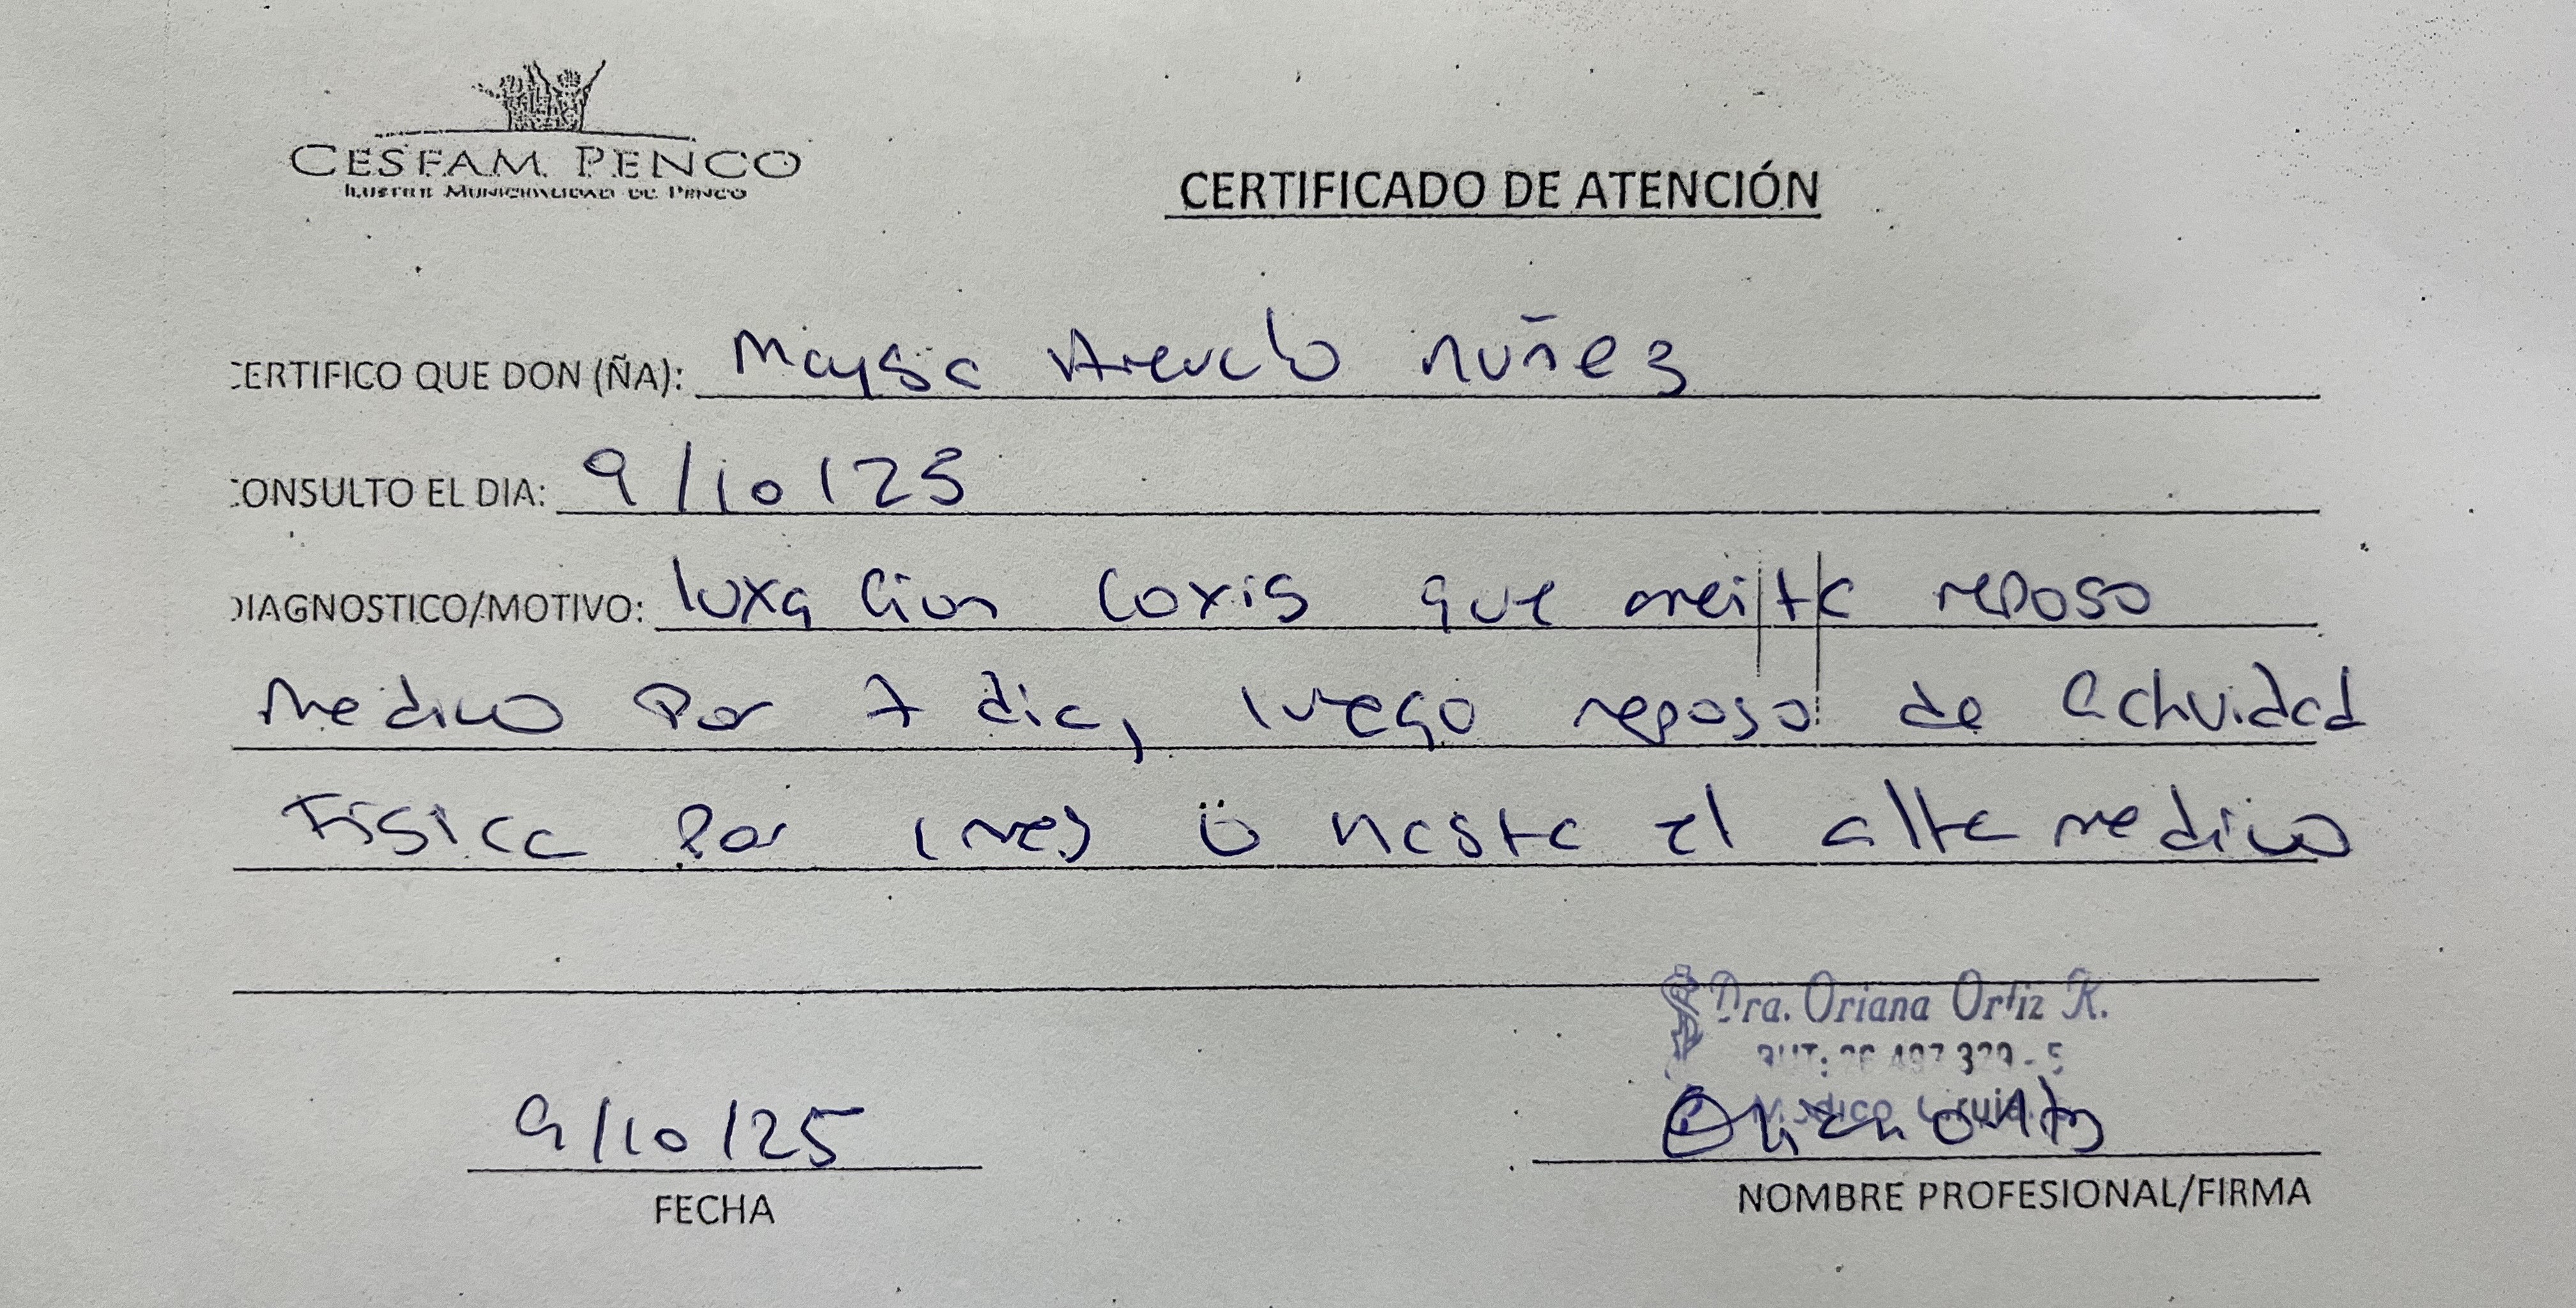 CESFAM PENCO
ILUSTRE MUNICIPALIDAD DE PENCO
CERTIFICADO DE ATENCIÓN
CERTIFICO QUE DON (ÑA): Maysa Arevalo Nuñez
CONSULTO EL DIA: 9/10/25
DIAGNOSTICO/MOTIVO: luxacion coxis que reposo
medico por 7 dia, luego reposo de actividad
Fisica por 1 mes o hasta el alta medico
Dra. Oriana Ortiz R.
9/10/25
FECHA
NOMBRE PROFESIONAL/FIRMA